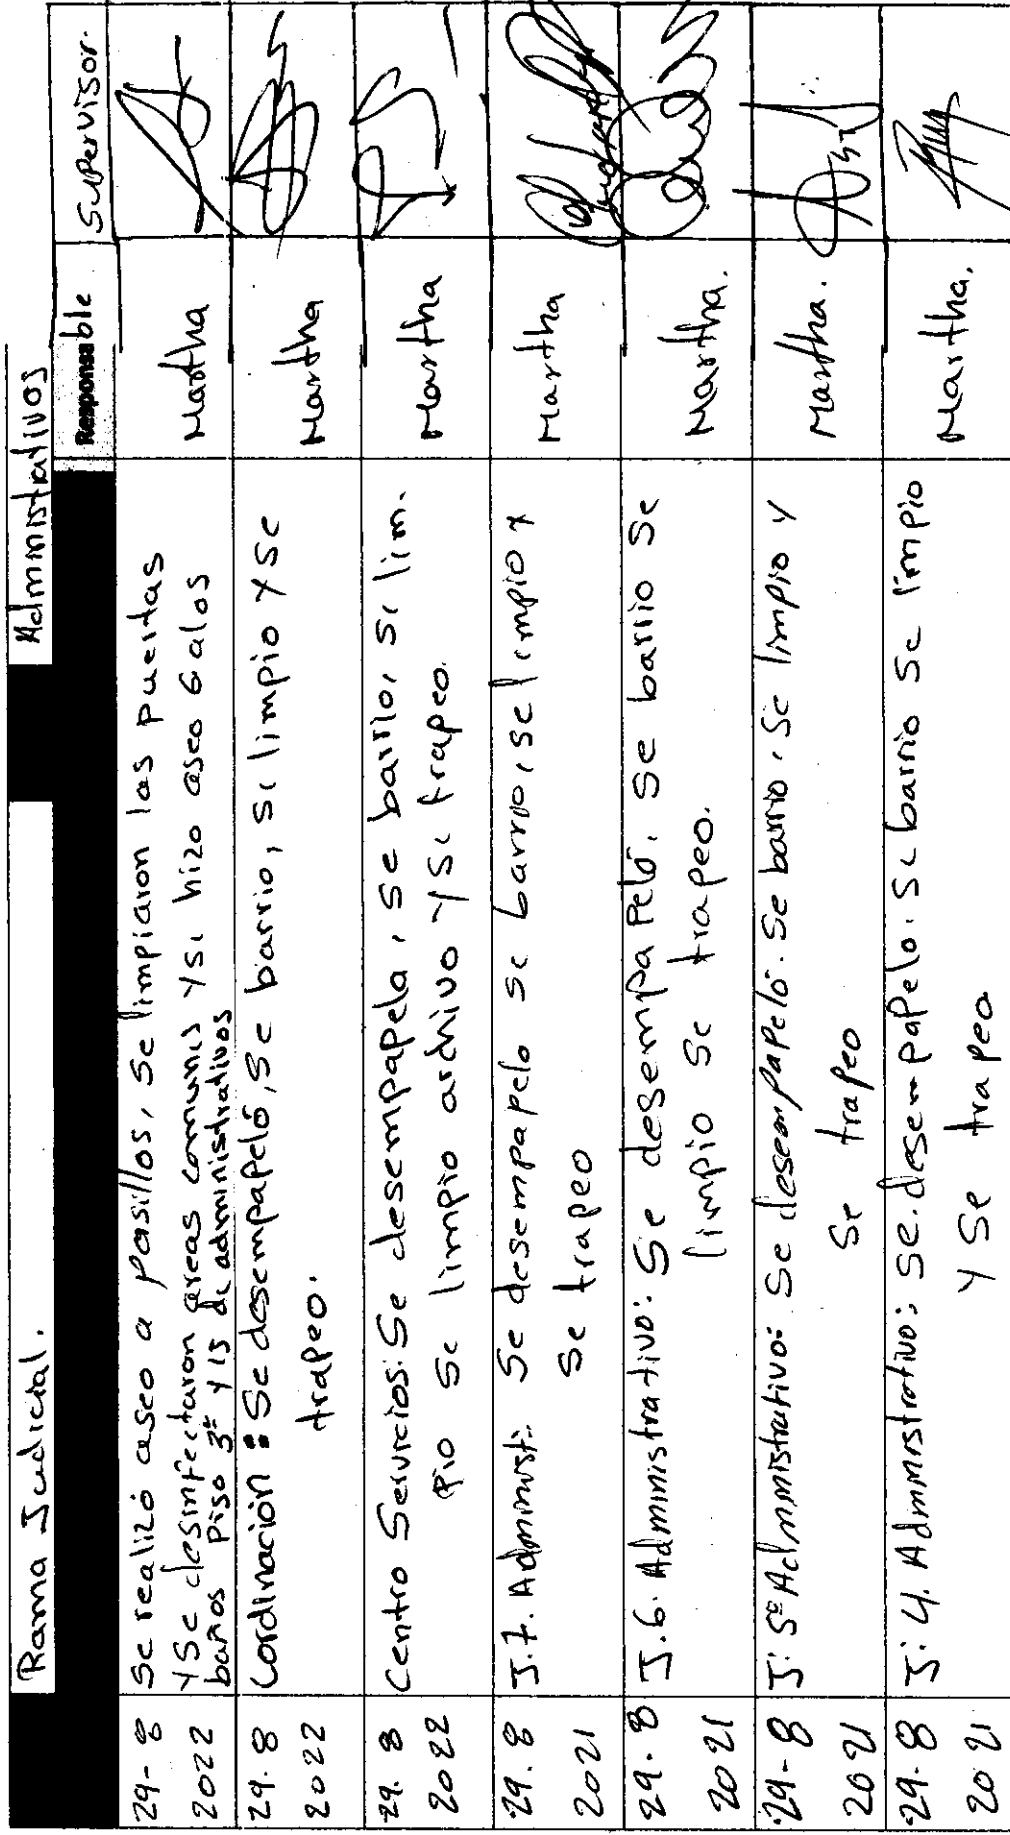 Rama Judicial. Administrativos
Responsable Supervisor.
29-8 Se realizó aseo a pasillos, se limpiaron las puertas
2022 y se desinfectaron areas comunes y se hizo aseo 6 a los Martha
baños piso 3º y 15 de administrativos
29.8 Cordinación: Se desempapeló, se barrio, se limpio y se
2022 trapeo. Martha
29.8 Centro Servicios: Se desempapela, se barrio, se lim.
2022 pio se limpio archivo y se trapeo. Martha
29.8 J.7. Administ: Se desempapelo se barrio, se limpio y
2021 Se trapeo Martha
29.8 J.6. Administrativo: Se desempapeló, se barrio se
2021 limpio se trapeo. Martha.
29-8 J: 5º Administrativo: Se desempapeló. Se barrio. Se limpio y
2021 Se trapeo Martha.
29.8 J: 4. Administrativo: Se desempapelo. se barrio se limpio
2021 y Se trapeo Martha.